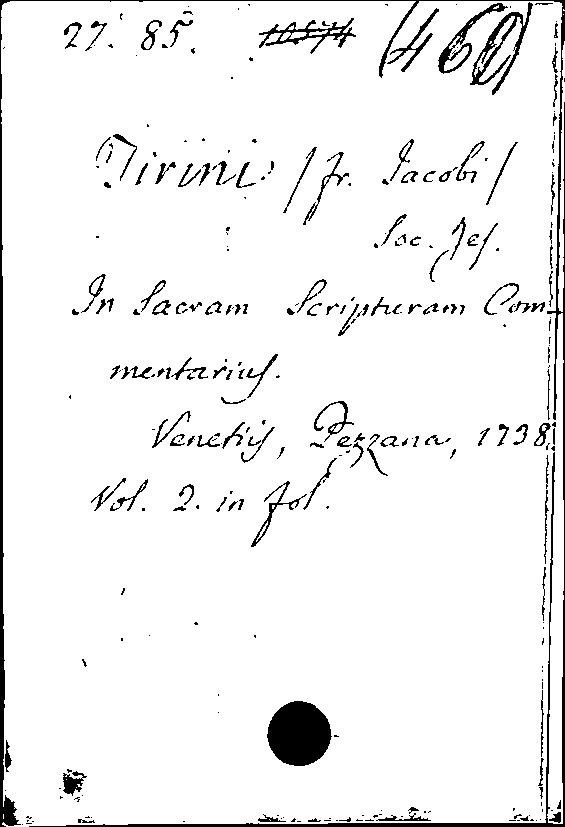 27. 85. 10574 (460)
Tirini /fr. Iacobi/
Soc. Jes.
In Sacram Scripturam Com-
mentarius.
Venetiis, Pezzana, 1738.
Vol. 2. in fol.